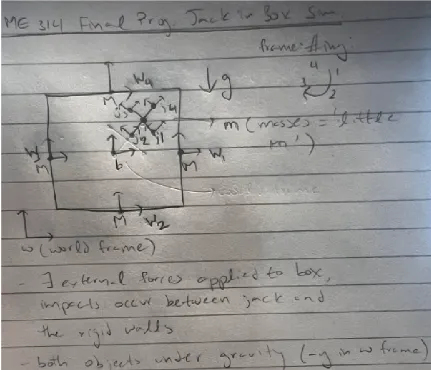 ME 314 Final Proj. Jack in Box Sim
frame thing:
4
3 1
2
w4
M
g
j3 j4
j2 j1
m (masses = 'little
m')
w3
M
b
M w1
M w2
w (world frame)
- ∃ external forces applied to box,
impacts occur between jack and
the rigid walls
- both objects under gravity (-y in w frame)